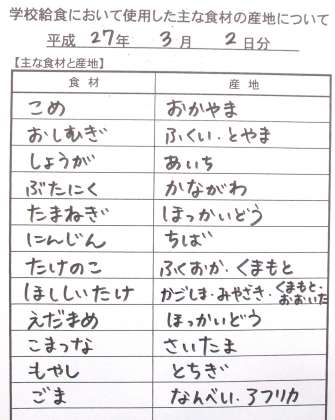 学校給食において使用した主な食材の産地について
平成 27年 3月 2日分
【主な食材と産地】
食材 産地
こめ おかやま
おしむぎ ふくい・とやま
しょうが あいち
ぶたにく かながわ
たまねぎ ほっかいどう
にんじん ちば
たけのこ ふくおか・くまもと
ほししいたけ かごしま・みやざき・くまもと・おおいた
えだまめ ほっかいどう
こまつな さいたま
もやし とちぎ
ごま なんべい・アフリカ